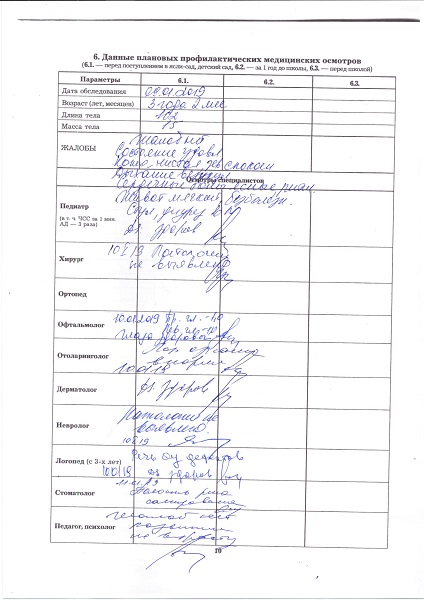 6. Данные плановых профилактических медицинских осмотров
(6.1. — перед поступлением в ясли-сад, детский сад, 6.2. — за 1 год до школы, 6.3. — перед школой)
Параметры 6.1. 6.2. 6.3.
Дата обследования 09.01.2019
Возраст (лет, месяцев) 3 года 2 мес
Длина тела 102
Масса тела 15
ЖАЛОБЫ Жалоб нет
Состояние удовл
Кожа чистая зев спокоен
Дыхание
Сердечные тоны ясные, ритм
Осмотры специалистов
Живот мягкий, безболезн.
Педиатр
(в т. ч. ЧСС за 1 мин. АД — 3 раза)
Стул, диурез в N
Дз здоров
Хирург 10.01.19 Патологии
не выявлено
Ортопед
Офтальмолог 10.01.2019
здоров
Отоларинголог Лор органы
в норме
10.01.19
Дерматолог Дз здоров
Невролог Патологии не
выявлено
Логопед (с 3-х лет) Речь
10.01.19 дз здоров
11.01.19
Стоматолог Полость рта
санирована
Педагог, психолог жалоб нет
развитие
по возрасту
10